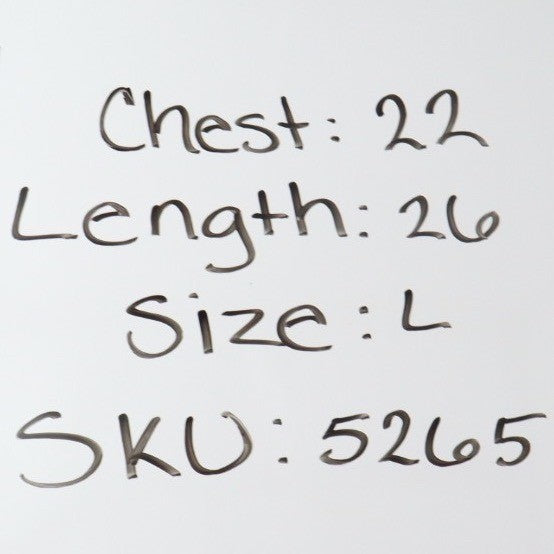 Chest: 22
Length: 26
Size: L
SKU: 5265